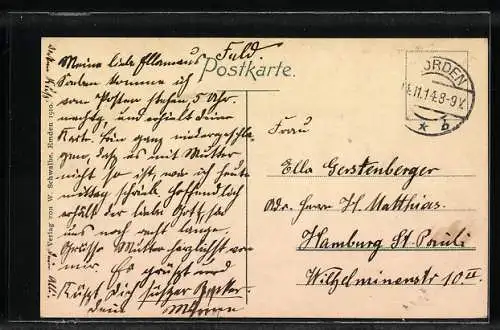 Feld.
Meine liebe Ellamaus
Postkarte.
Soeben komme ich
vom Posten stehen, 5 Uhr.
nachtg, und erhielt deine
Karte. Bin ganz niedergeschla-
gen, daß es mit Mutter
nicht so ist, was ich heute
mittag schrieb. Hoffentlich
erhält der liebe Gott, sie
uns noch recht lange.
Grüsse Mutter herzlichst von
mir. Es grüsst und
Küsst Dich
dein
Verlag von W. Schwalbe, Emden 1910.
NORDEN
11.14.8-9V.
* b
Frau
Ella Gerstenberger
Adr. Herrn H. Matthias.
Hamburg St. Pauli
Wilhelminenstr 10 II